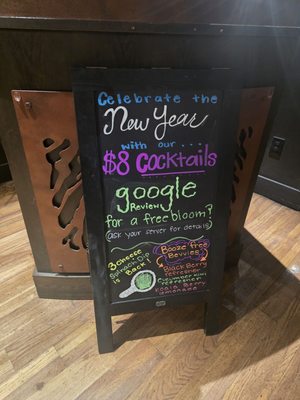 Celebrate the
New Year
with our...
$8 Cocktails
google
Review
for a free bloom?
(ask your server for details)
3 Cheese
Spinach Dip
is Back!
Booze free
Bevvies
BlackBerry
refresher
Cucumber
refresher
Berry
lemonade